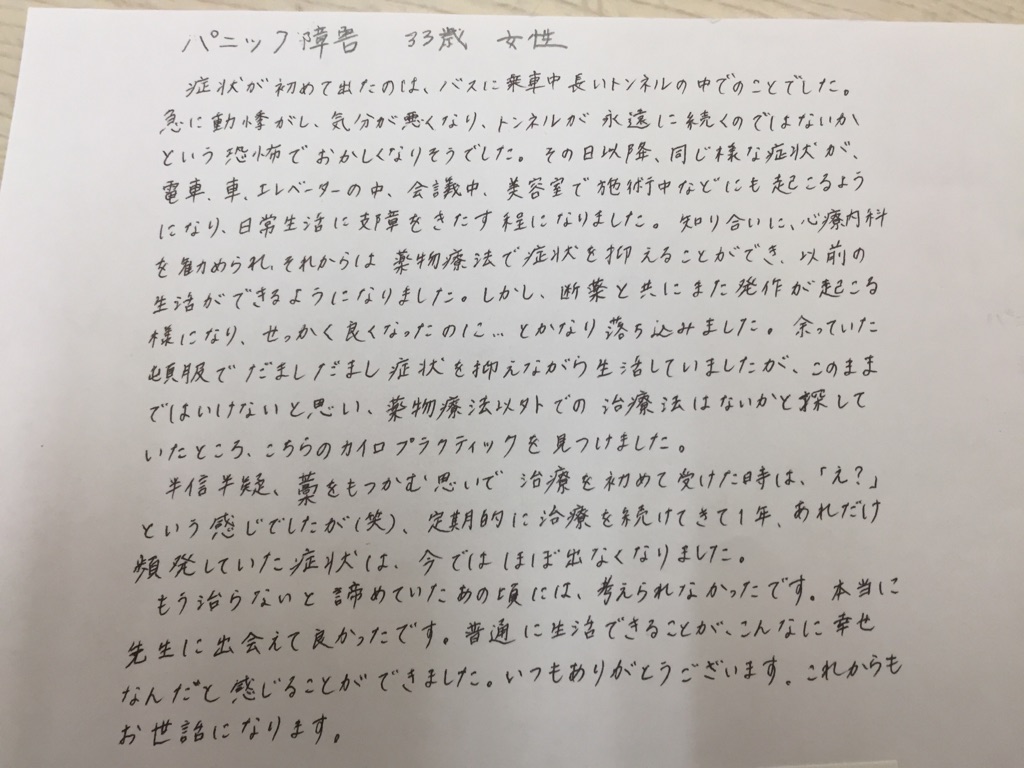 パニック障害 33歳 女性
症状が初めて出たのは、バスに乗車中長いトンネルの中でのことでした。
急に動悸がし、気分が悪くなり、トンネルが永遠に続くのではないか
という恐怖でおかしくなりそうでした。その日以降、同じ様な症状が、
電車、車、エレベーターの中、会議中、美容室で施術中などにも起こるよう
になり、日常生活に支障をきたす程になりました。知り合いに、心療内科
を勧められ、それからは薬物療法で症状を抑えることができ、以前の
生活ができるようになりました。しかし、断薬と共にまた発作が起こる
様になり、せっかく良くなったのに…とかなり落ち込みました。余っていた
頓服でだましだまし症状を抑えながら生活していましたが、このまま
ではいけないと思い、薬物療法以外での治療法はないかと探して
いたところ、こちらのカイロプラクティックを見つけました。
半信半疑、藁をもつかむ思いで治療を初めて受けた時は、「え?」
という感じでしたが(笑)、定期的に治療を続けてきて1年、あれだけ
頻発していた症状は、今ではほぼ出なくなりました。
もう治らないと諦めていたあの頃には、考えられなかったです。本当に
先生に出会えて良かったです。普通に生活できることが、こんなに幸せ
なんだと感じることができました。いつもありがとうございます。これからも
お世話になります。